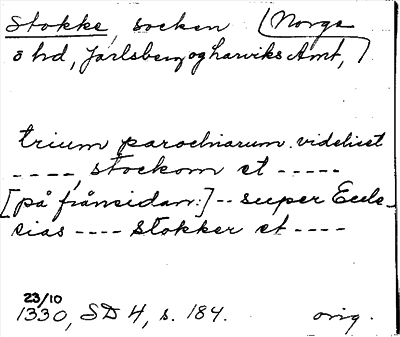 Stokke, socken (Norge
ö hd, Jarlsberg og Larviks Amt,)
trium parochiarum. videlicet
- - - -, stockom et - - - - -
[på frånsidan:] - - super Eccle-
sias - - - - Stokker et - - - -
23/10
1330, SD 4, s. 184. orig.